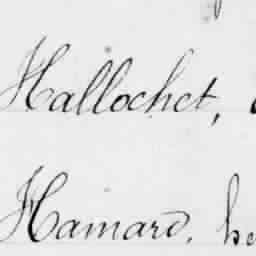 Hallochet,
Hamard, he